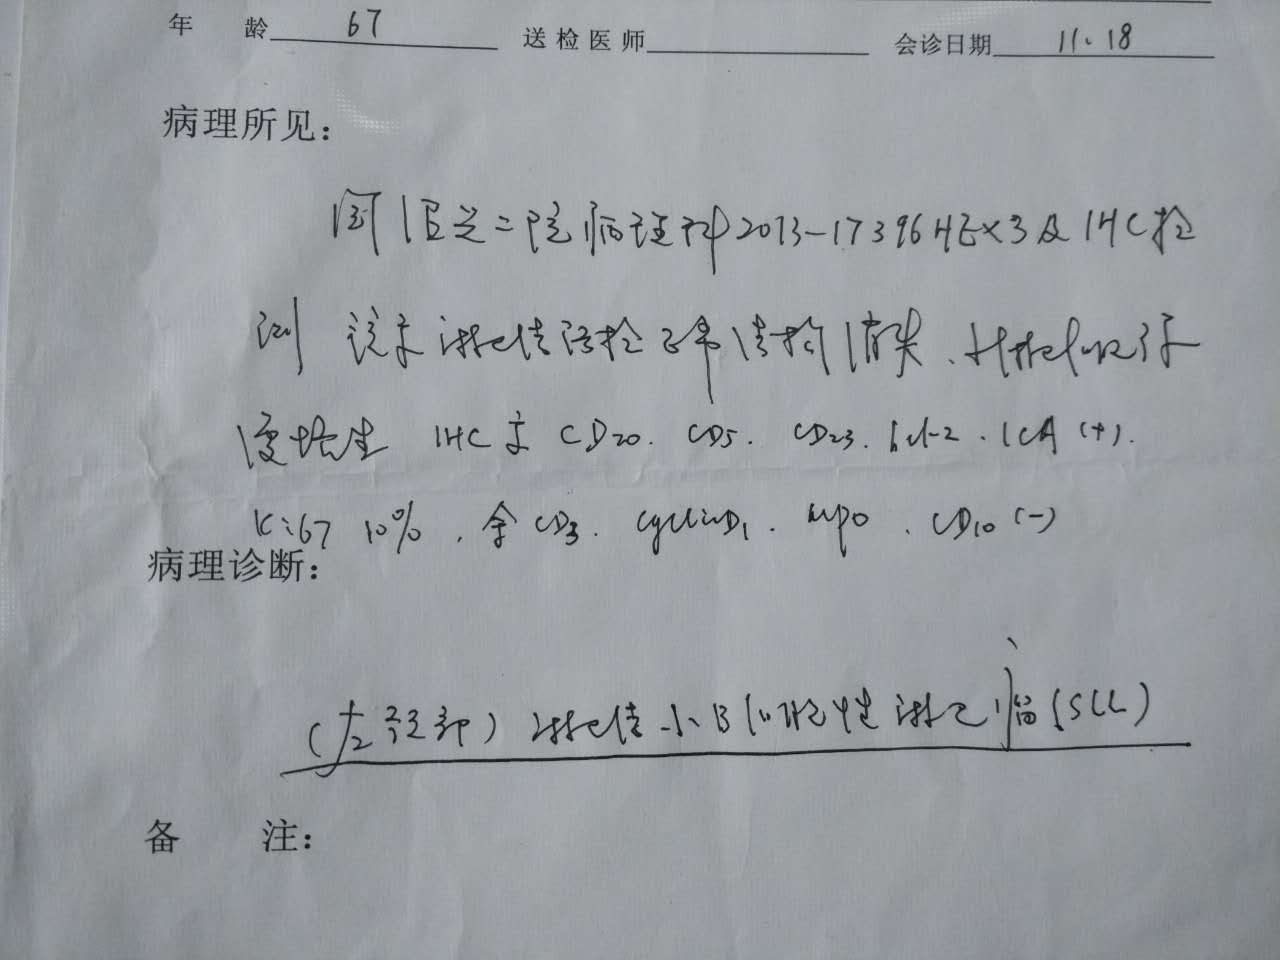 年 龄 67 送检医师 会诊日期 11.18
病理所见：
阅 医 二院病理科2013-17396 HE×3及IHC检
测 示淋巴结活检 正常结构消失、淋巴细胞
增生 IHC示 CD20. CD5. CD23. bcl-2. LCA (+).
Ki67 10%, 余 CD3. CyclinD1. MPO. CD10 (-)
病理诊断：
(左颈部) 淋巴结小B细胞性淋巴瘤(SLL)
备 注：